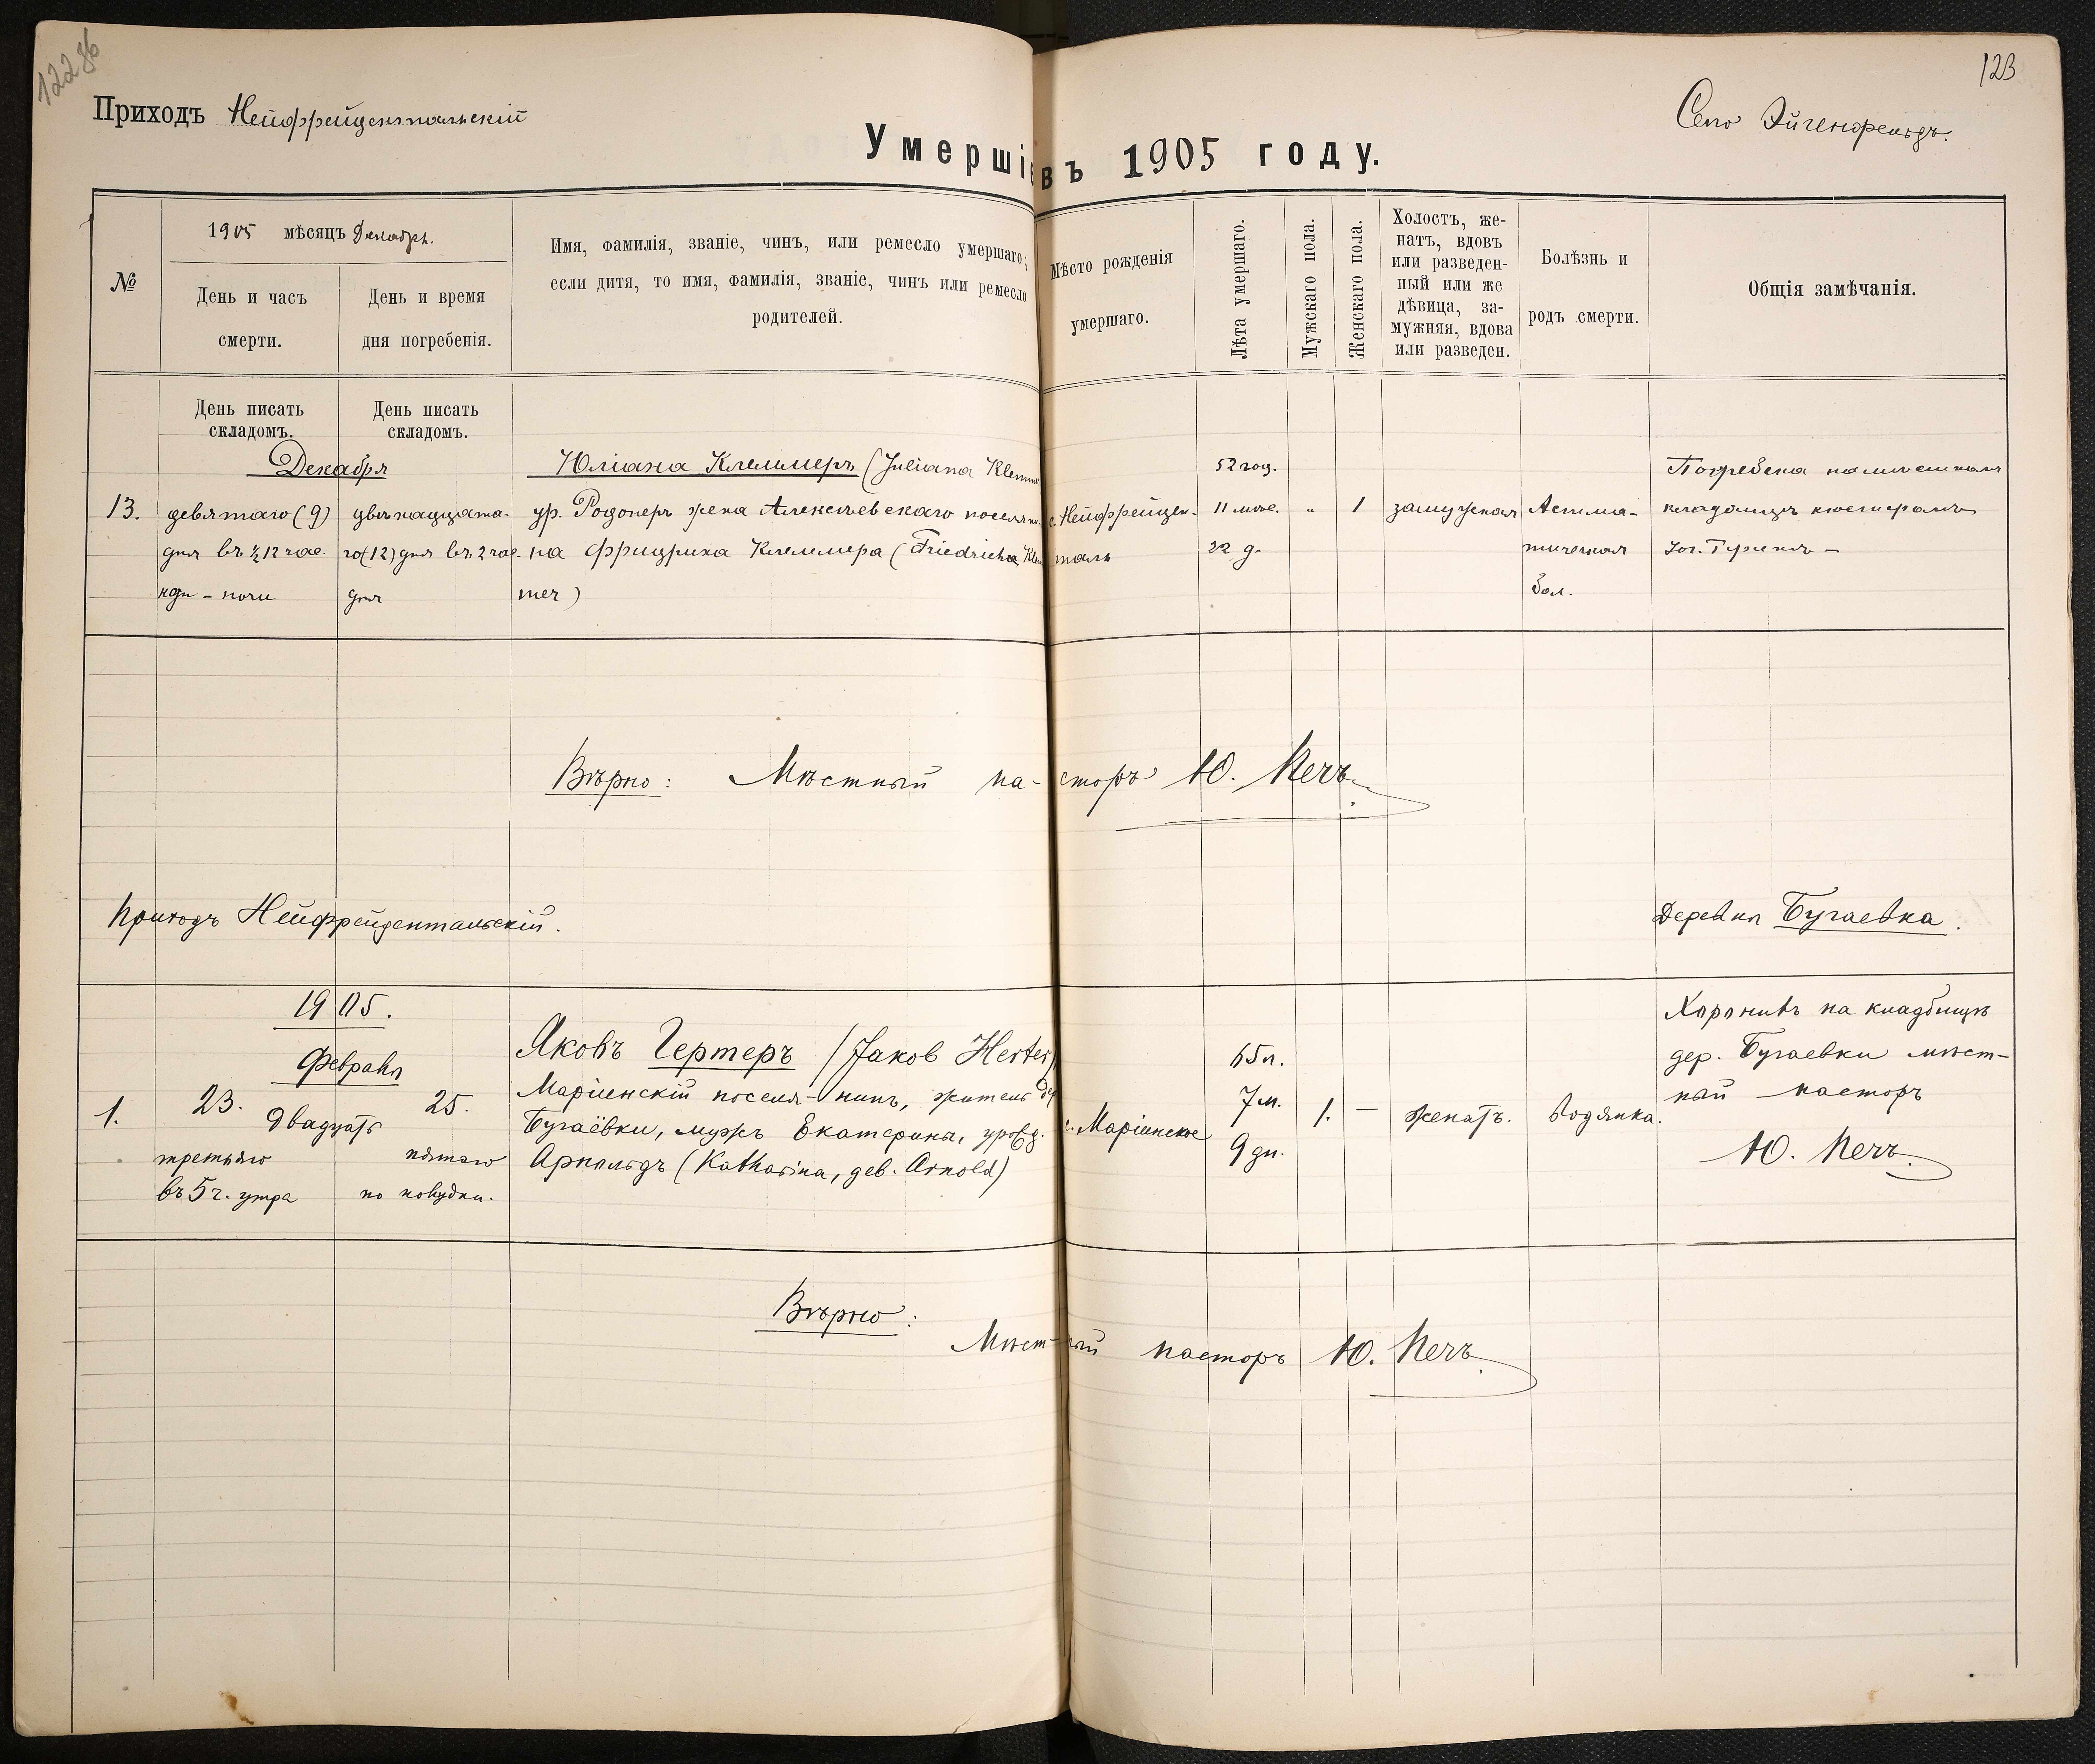 122 об
123
Приходъ Нейфрейдентальскій
Село Эйгенфельдъ.
Умершіе въ 1905 году.
№
1905 мѣсяцъ Декабрь.
День и часъ
смерти.
День и время
дня погребенія.
Имя, фамилія, званіе, чинъ, или ремесло умершаго;
если дитя, то имя, фамилія, званіе, чинъ или ремесло
родителей.
Мѣсто рожденія
умершаго.
Лѣта умершаго.
Мужскаго пола.
Женскаго пола.
Холостъ, же-
натъ, вдовъ
или разведен-
ный или же
дѣвица, за-
мужняя, вдова
или разведен.
Болѣзнь и
родъ смерти.
Общія замѣчанія.
День писать
складомъ.
День писать
складомъ.
Декабря
13.
девятаго (9)
дня въ ½ 12 час.
ночи
двѣнадцата-
го (12) дня въ 2 час.
дня
Юліана Клеммеръ (Juliana Klemmer
ур. жена Алексѣевскаго поселяни-
на Фридриха Клеммера (Friedricha Klem
mer)
с. Нейфрейден-
таль
52 год.
11 мѣс.
22 д.
"
1
замужняя
Астма-
тическая
бол.
Погребена на мѣстномъ
кладбищѣ кюстеромъ
Вѣрно: Мѣстный па-сторъ Ю. Печъ.
Приходъ Нейфрейдентальскій.
Деревня Бугаевка.
1905.
Февраля
1.
23.
Двадцать
третьяго
въ 5 ч. утра
25.
пятаго
по полудни.
Яковъ Гертеръ (Jakob Herter),
Маріинскій поселя-нинъ, житель дер
Бугаёвки, мужъ Екатерины, урожд.
Арнольдъ (Katharina, дев. Arnold)
с. Маріинское
65 л.
7 м.
9 дн.
1.
—
женатъ.
Водянка.
Хоронивъ на кладбищѣ
дер. Бугаевки мѣст-
ный пасторъ
Ю. Печъ.
Вѣрно:
Мѣст-ный пасторъ Ю. Печъ.